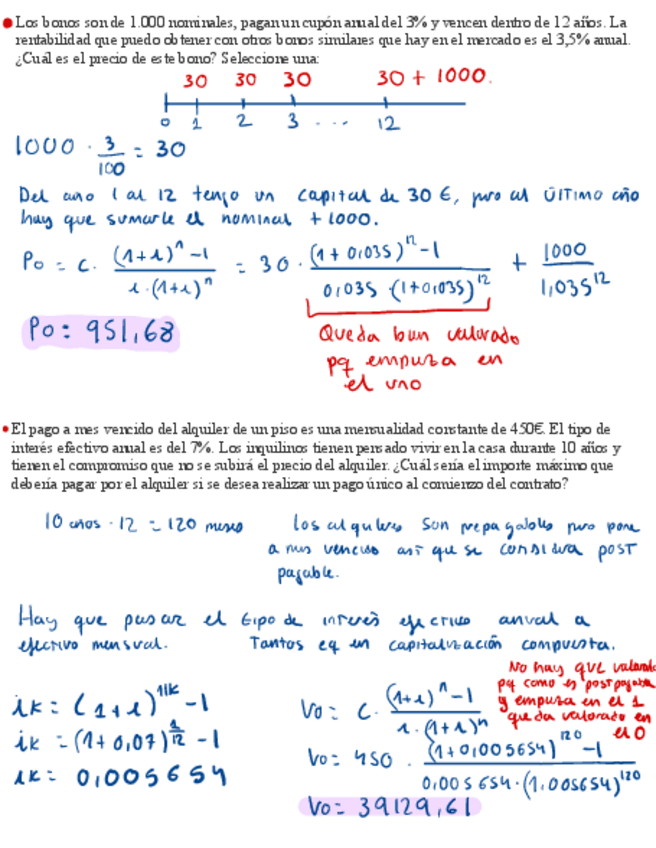 Los bonos son de 1.000 nominales, pagan un cupón anual del 3% y vencen dentro de 12 años. La
rentabilidad que puedo obtener con otros bonos similares que hay en el mercado es el 3,5% anual.
¿Cuál es el precio de este bono? Seleccione una:
30 30 30 30 + 1000.
0 1 2 3 ... 12
1000 · 3/100 = 30
Del año 1 al 12 tengo un capital de 30 €, pero al ÚLTIMO año
hay que sumarle el nominal + 1000.
Po = c · (1+i)^n - 1 / i·(1+i)^n = 30 · (1+0,035)^12 - 1 / 0,035 · (1+0,035)^12 + 1000 / 1,035^12
Po = 951,68
Queda bien valorado
pq empieza en
el uno
El pago a mes vencido del alquiler de un piso es una mensualidad constante de 450€. El tipo de
interés efectivo anual es del 7%. Los inquilinos tienen pensado vivir en la casa durante 10 años y
tienen el compromiso que no se subirá el precio del alquiler. ¿Cuál sería el importe máximo que
debería pagar por el alquiler si se desea realizar un pago único al comienzo del contrato?
10 años · 12 = 120 meses
Los alquileres son prepagables pero pone
a mes vencido así que se considera POST
pagable.
Hay que pasar el tipo de interés efectivo anual a
efectivo mensual. Tantos eq en capitalización compuesta.
No hay que valorarlo
pq como es postpagable
y empieza en el 1
queda valorado en
el 0
ik = (1+i)^1/k - 1
ik = (1+0,07)^1/12 - 1
ik = 0,005654
Vo = c · (1+i)^n - 1 / i·(1+i)^n
Vo = 450 · (1+0,005654)^120 - 1 / 0,005654·(1,005654)^120
Vo = 39129,61